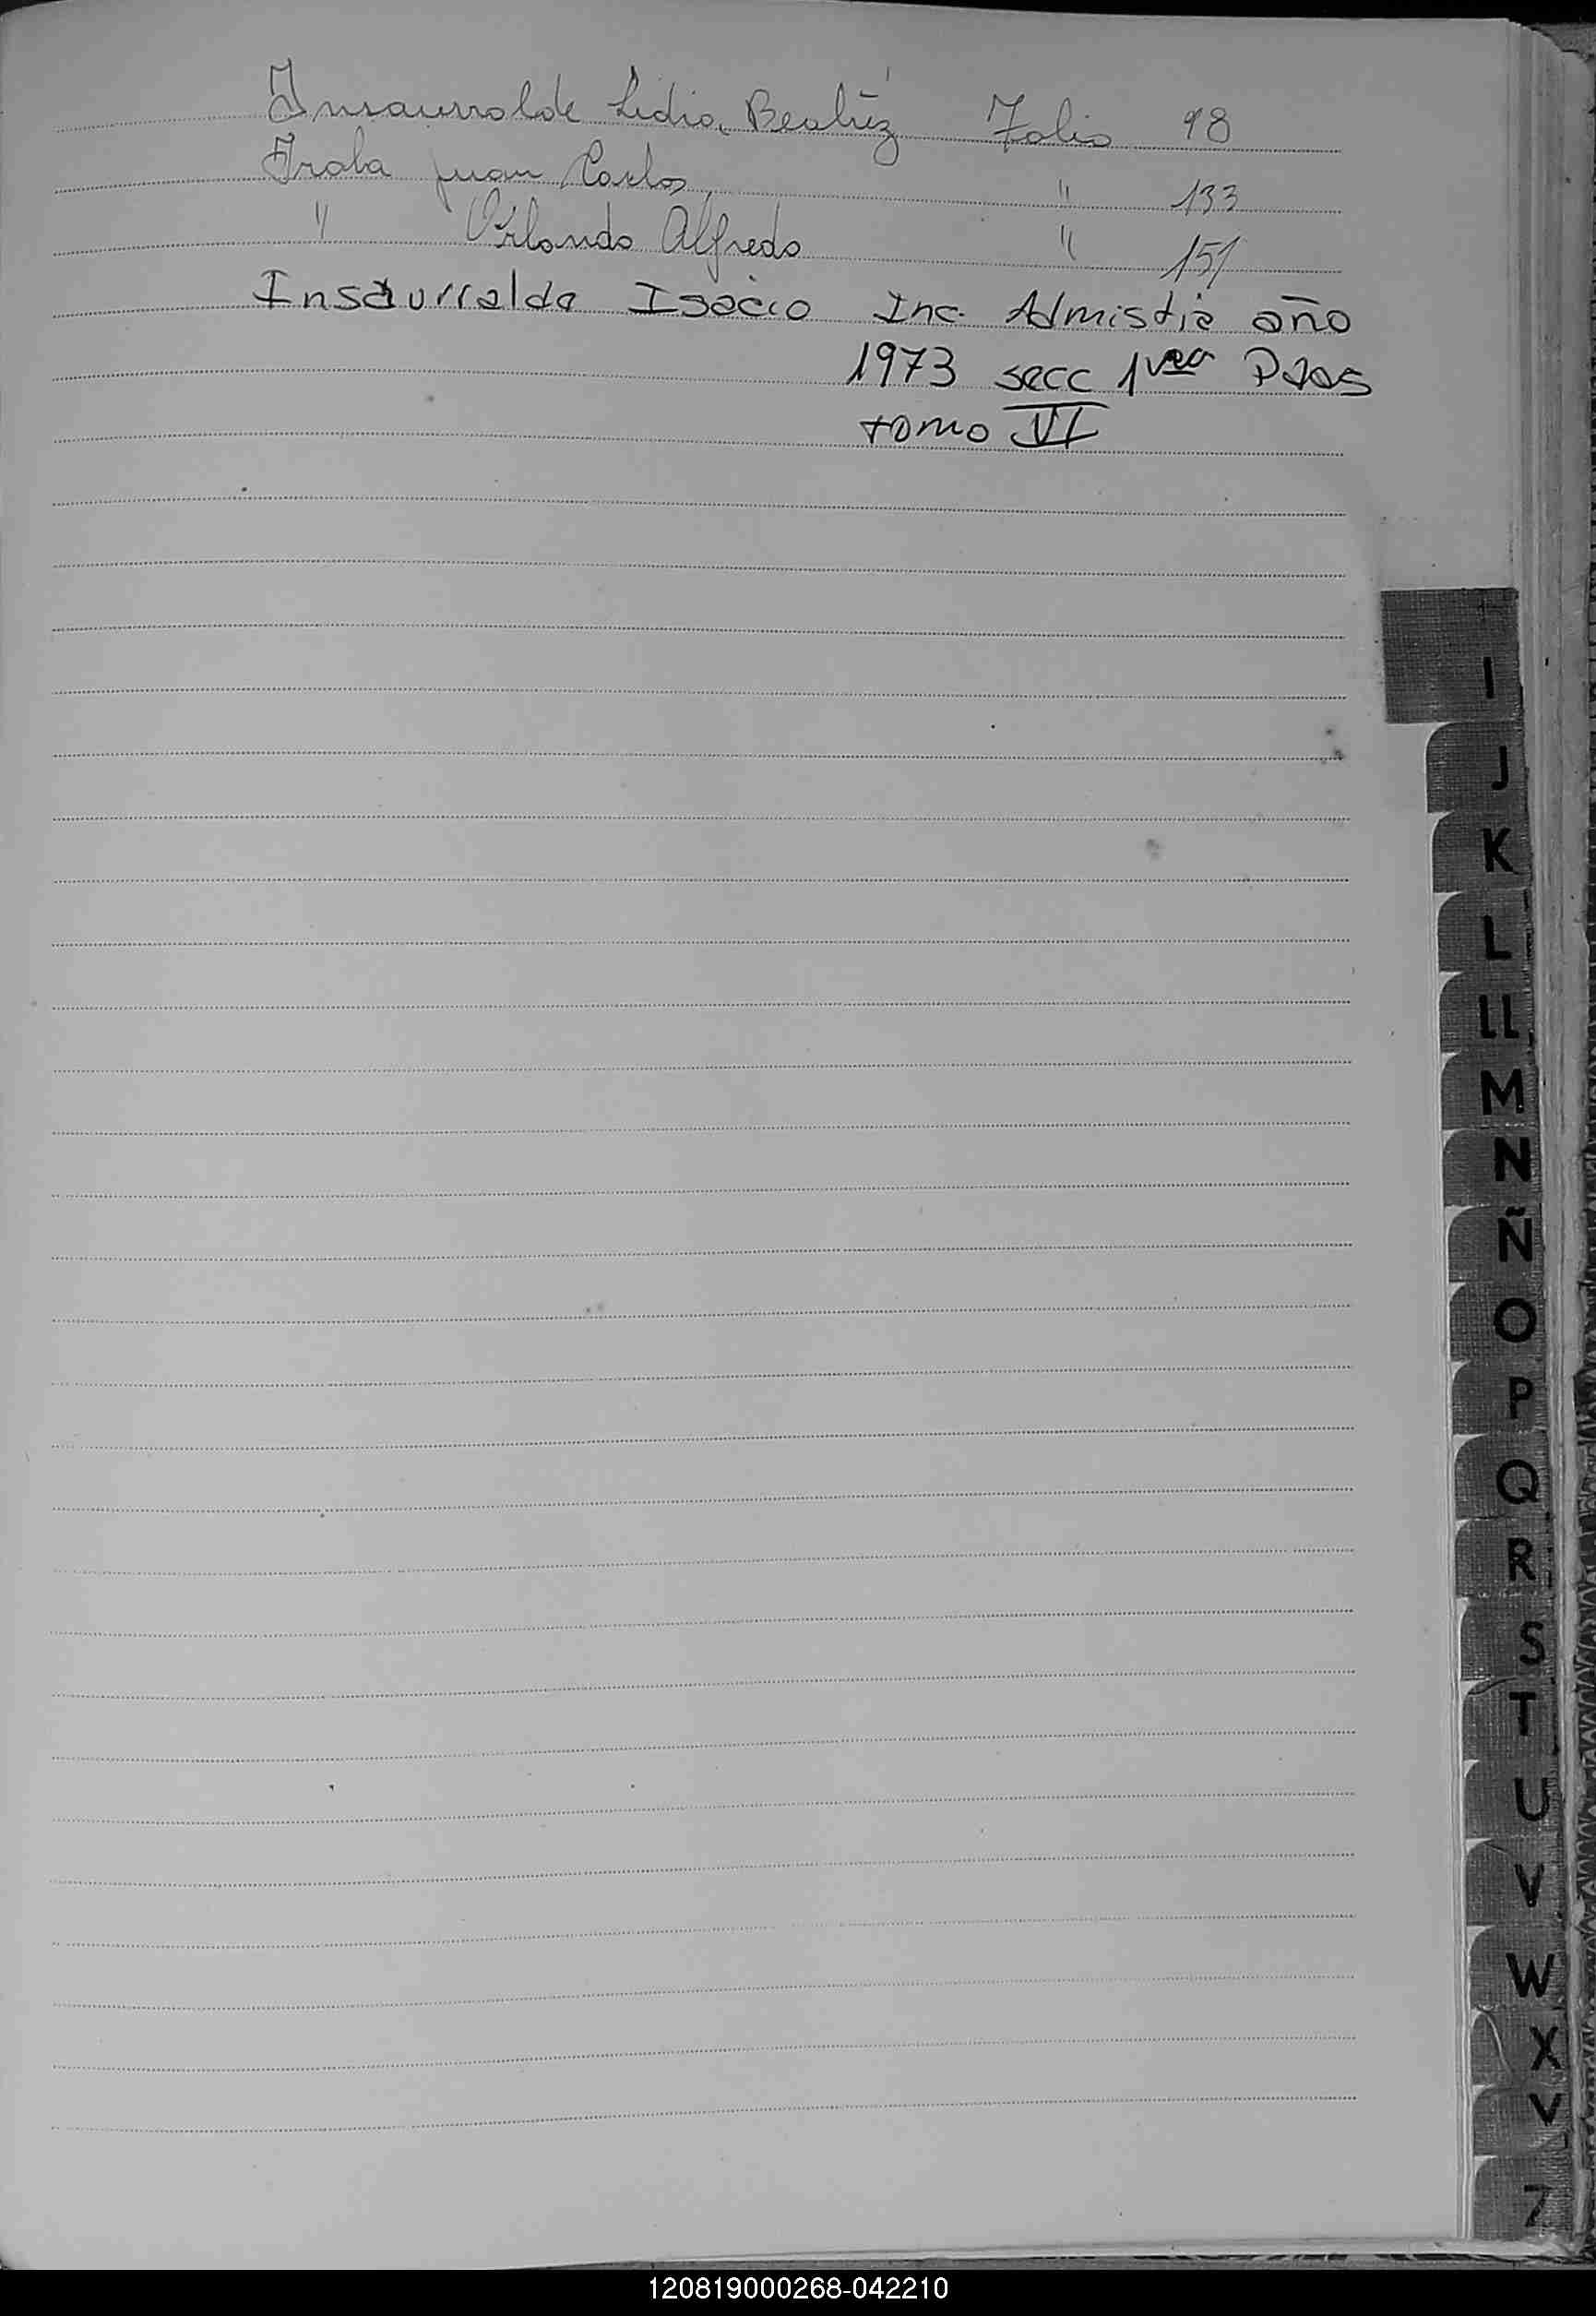 Insaurralde Lidia Beatríz Folio 98
Irala Juan Carlos " 133
" Orlando Alfredo " 151
Insaurralde Isacio Inc. Admistia año
1973 secc 1ra
tomo VI
I
J
K
L
LL
M
N
Ñ
O
P
Q
R
S
T
U
V
W
X
Y
Z
120819000268-042210